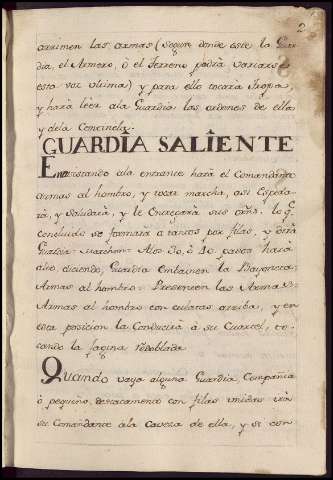 2
arrimen las armas (segun donde este la Guar
dia, el Armero, ò el terreno podra variarse
esta voz ultima) y para ello tocarà Tropa,
y harà leer ala Guardia las ordenes de ella
y dela Centinela.
GUARDIA SALIENTE
ala entrante harà el Comandante
armas al hombro, y tocar marcha, asi
rà, y Saludarà, y le Entregarà sus lo q.
Concluido se formarà a tantos por filas, y dirà
Guardia Marchen = Alos 30, ò 40 pasos harà
alto, diciendo, Guardia Enbainen la Bayoneta =
Armas al hombro = Presenten las Armas =
Armas al hombro con culatas arriba, y en
esta posicion la Conducirà à su Cuartel, to-
cando la fagina redoblada.
Quando vaya alguna Guardia Compañia
ò pequeño destacamento con filas unidas irà
su Comandante ala Caveza de ella, y si con